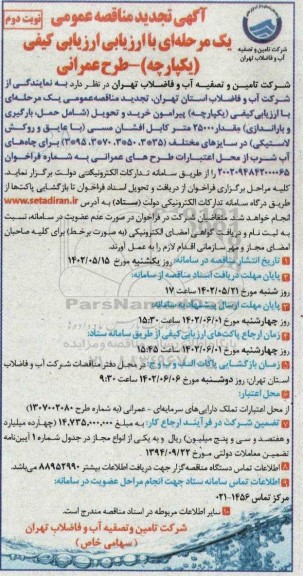 آگهی تجدید مناقصه عمومی
نوبت دوم
یک مرحله‌ای با ارزیابی ارزیابی کیفی
(یکپارچه)-طرح عمرانی
شرکت تامین و تصفیه
آب و فاضلاب تهران
شرکت تامین و تصفیه آب و فاضلاب تهران در نظر دارد به نمایندگی از
شرکت آب و فاضلاب استان تهران، تجدید مناقصه عمومی یک مرحله‌ای
با ارزیابی کیفی (یکپارچه) پیرامون خرید و تحویل (شامل حمل، بارگیری
و باراندازی) مقدار ۲۵۰۰۰ متر کابل افشان مسی (با عایق و روکش
لاستیکی) در سایزهای مختلف (۳*۳۵، ۳*۵۰، ۳*۷۰، ۳*۹۵) برای چاه‌های
آب شرب از محل اعتبارات طرح های عمرانی به شماره فراخوان
۲۰۰۲۰۹۴۸۴۲۰۰۰۰۶۵ را از طریق سامانه تدارکات الکترونیکی دولت برگزار نماید.
کلیه مراحل برگزاری فراخوان از دریافت و تحویل اسناد فراخوان تا بازگشایی پاکت‌ها از
طریق درگاه سامانه تدارکات الکترونیکی دولت (ستاد) به آدرس www.setadiran.ir
انجام خواهد شد. متقاضیان شرکت در فراخوان در صورت عدم عضویت در سامانه، نسبت
به ثبت نام و دریافت گواهی امضای الکترونیکی (به صورت برخط) برای کلیه صاحبان
امضای مجاز و مهر سازمانی اقدام لازم را به عمل آورند.
۱ تاریخ انتشار مناقصه در سامانه: روز یکشنبه مورخ ۱۴۰۲/۰۵/۱۵
۲ پایان مهلت دریافت اسناد مناقصه از سامانه:
روز شنبه مورخ ۱۴۰۲/۰۵/۲۱ ساعت ۱۷
۳ پایان مهلت ارسال پیشنهاد به سامانه:
روز چهارشنبه مورخ ۱۴۰۲/۰۶/۰۱ ساعت ۱۵:۳۰
۴ زمان ارجاع پاکت‌های ارزیابی کیفی از طریق سامانه ستاد:
روز چهارشنبه مورخ ۱۴۰۲/۰۶/۰۱ ساعت ۱۵:۴۵
۵ زمان بازگشایی پاکات الف و ب و ج: در محل دفتر مناقصات شرکت آب و فاضلاب
استان تهران: روز دوشنبه مورخ ۱۴۰۲/۰۶/۰۶ ساعت ۹:۳۰
۶ محل اعتبار:
از محل اعتبارات تملک دارایی‌های سرمایه‌ای - عمرانی (به شماره طرح ۱۳۰۷۰۰۲۰۸۰)
۷ تضمین شرکت در فرآیند ارجاع کار: به مبلغ ۱۴,۷۳۵,۰۰۰,۰۰۰ (چهارده میلیارد
و هفتصد و سی و پنج میلیون) ریال و به یکی از انواع مجاز در جدول شماره ۱ آیین‌نامه
تضمین معاملات دولتی مورخ ۱۳۹۴/۰۹/۲۲
۸ اطلاعات تماس دستگاه مناقصه گزار جهت دریافت اطلاعات بیشتر ۸۸۹۵۲۹۹۰ می‌باشد.
۹ اطلاعات تماس سامانه ستاد جهت انجام مراحل عضویت در سامانه:
مرکز تماس ۱۴۵۶-۰۲۱
سایر اطلاعات مربوطه در اسناد مناقصه مندرج است.
شرکت تامین و تصفیه آب و فاضلاب تهران
(سهامی خاص)